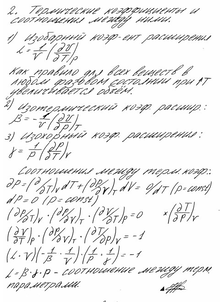 2. Термические коэффициенты и
соотношения между ними.
1) Изобарный коэф-ент расширения
α = 1/V (∂V/∂T)p
Как правило для всех веществ в
любом фазовом состоянии при ↑T
увеличивается объём.
2) Изотермический коэф. расшир.:
β = -1/V (∂V/∂P)T
3) Изохорный коэф. расширения:
γ = 1/P (∂P/∂T)V
Соотношения между терм. коэф:
dP = 0 (P = const)
(∂V/∂T)p · (∂P/∂V)T · (∂T/∂P)V = -1
(α·V) · (-1/β · 1/V) · (1/P · 1/γ) = -1
α = β·γ·P - соотношение между терм
параметрами.